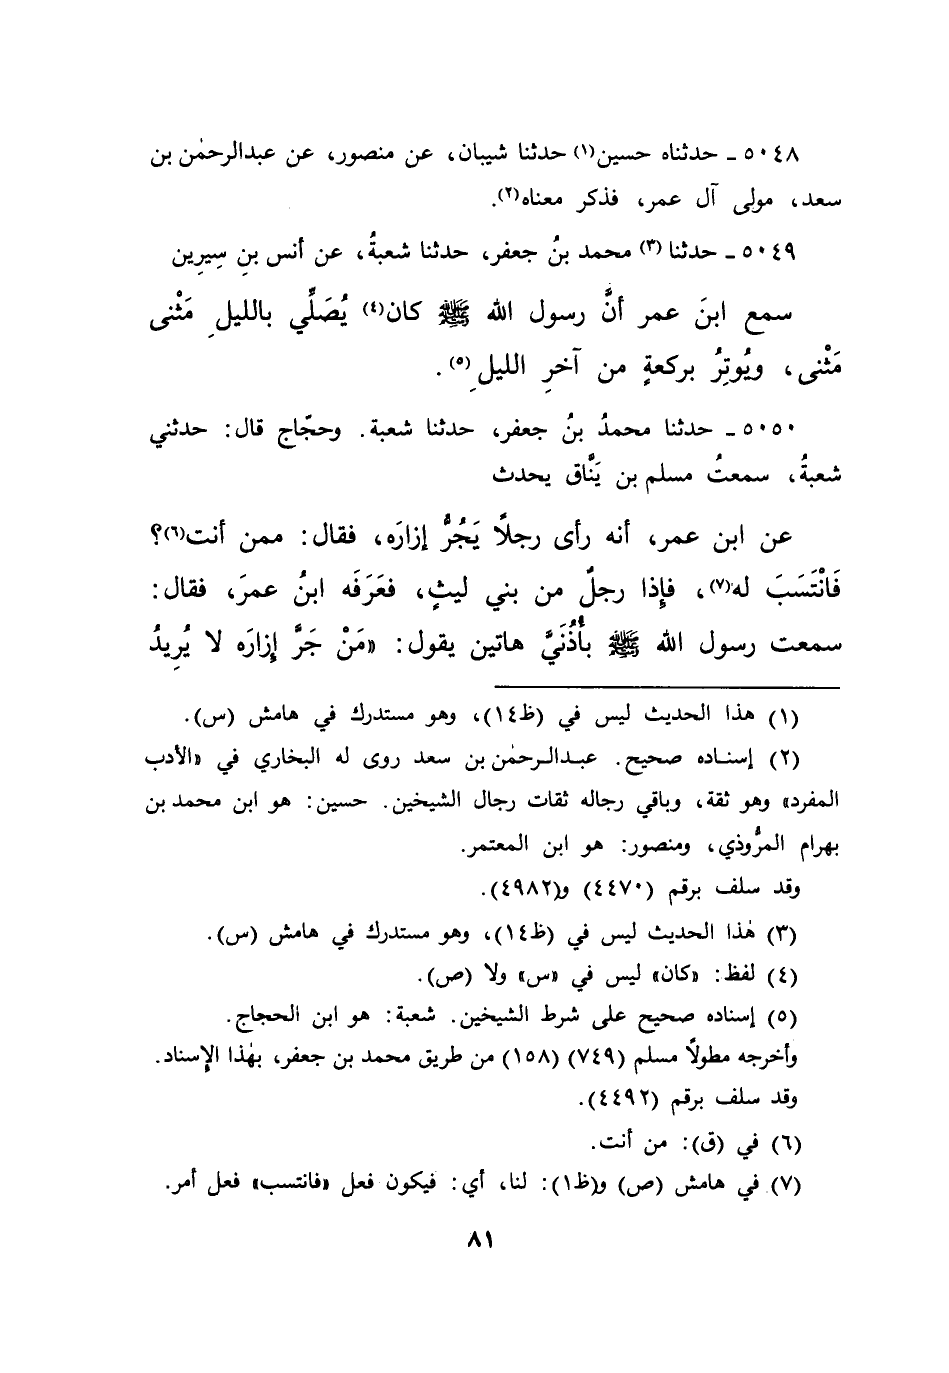 ٥٠٤٨ ـ حدثناه حسين(١) حدثنا شيبان، عن منصور، عن عبدالرحمٰن بن
سعد، مولى آل عمر، فذكر معناه(٢).
٥٠٤٩ ـ حدثنا (٣) محمد بنُ جعفر، حدثنا شعبةُ، عن أنس بنِ سِيرِين
سمع ابنَ عمر أنَّ رسول الله ﷺ كان(٤) يُصَلِّي بالليلِ مَثْنى
مَثْنى، ويُوتِرُ بركعةٍ من آخرِ الليلِ(٥).
٥٠٥٠ ـ حدثنا محمدُ بنُ جعفر، حدثنا شعبة. وحجّاج قال: حدثني
شعبةُ، سمعتُ مسلم بن يَنَّاق يحدث
عن ابن عمر، أنه رأى رجلاً يَجُرُّ إزارَه، فقال: ممن أنت(٦)؟
فَانْتَسَبَ له(٧)، فإذا رجلٌ من بني ليثٍ، فعَرَفَه ابنُ عمرَ، فقال:
سمعت رسول الله ﷺ بأُذُنَيَّ هاتين يقول: «مَنْ جَرَّ إزارَه لا يُرِيدُ
(١) هذا الحديث ليس في (ظ١٤)، وهو مستدرك في هامش (س).
(٢) إسناده صحيح. عبدالرحمٰن بن سعد روى له البخاري في «الأدب
المفرد» وهو ثقة، وباقي رجاله ثقات رجال الشيخين. حسين: هو ابن محمد بن
بهرام المرُّوذي، ومنصور: هو ابن المعتمر.
وقد سلف برقم (٤٤٧٠) و(٤٩٨٢).
(٣) هٰذا الحديث ليس في (ظ١٤)، وهو مستدرك في هامش (س).
(٤) لفظ: «كان» ليس في «س» ولا (ص).
(٥) إسناده صحيح على شرط الشيخين. شعبة: هو ابن الحجاج.
وأخرجه مطولاً مسلم (٧٤٩) (١٥٨) من طريق محمد بن جعفر، بهٰذا الإسناد.
وقد سلف برقم (٤٤٩٢).
(٦) في (ق): من أنت.
(٧) في هامش (ص) و(ظ١): لنا، أي: فيكون فعل «فانتسب» فعل أمر.
٨١